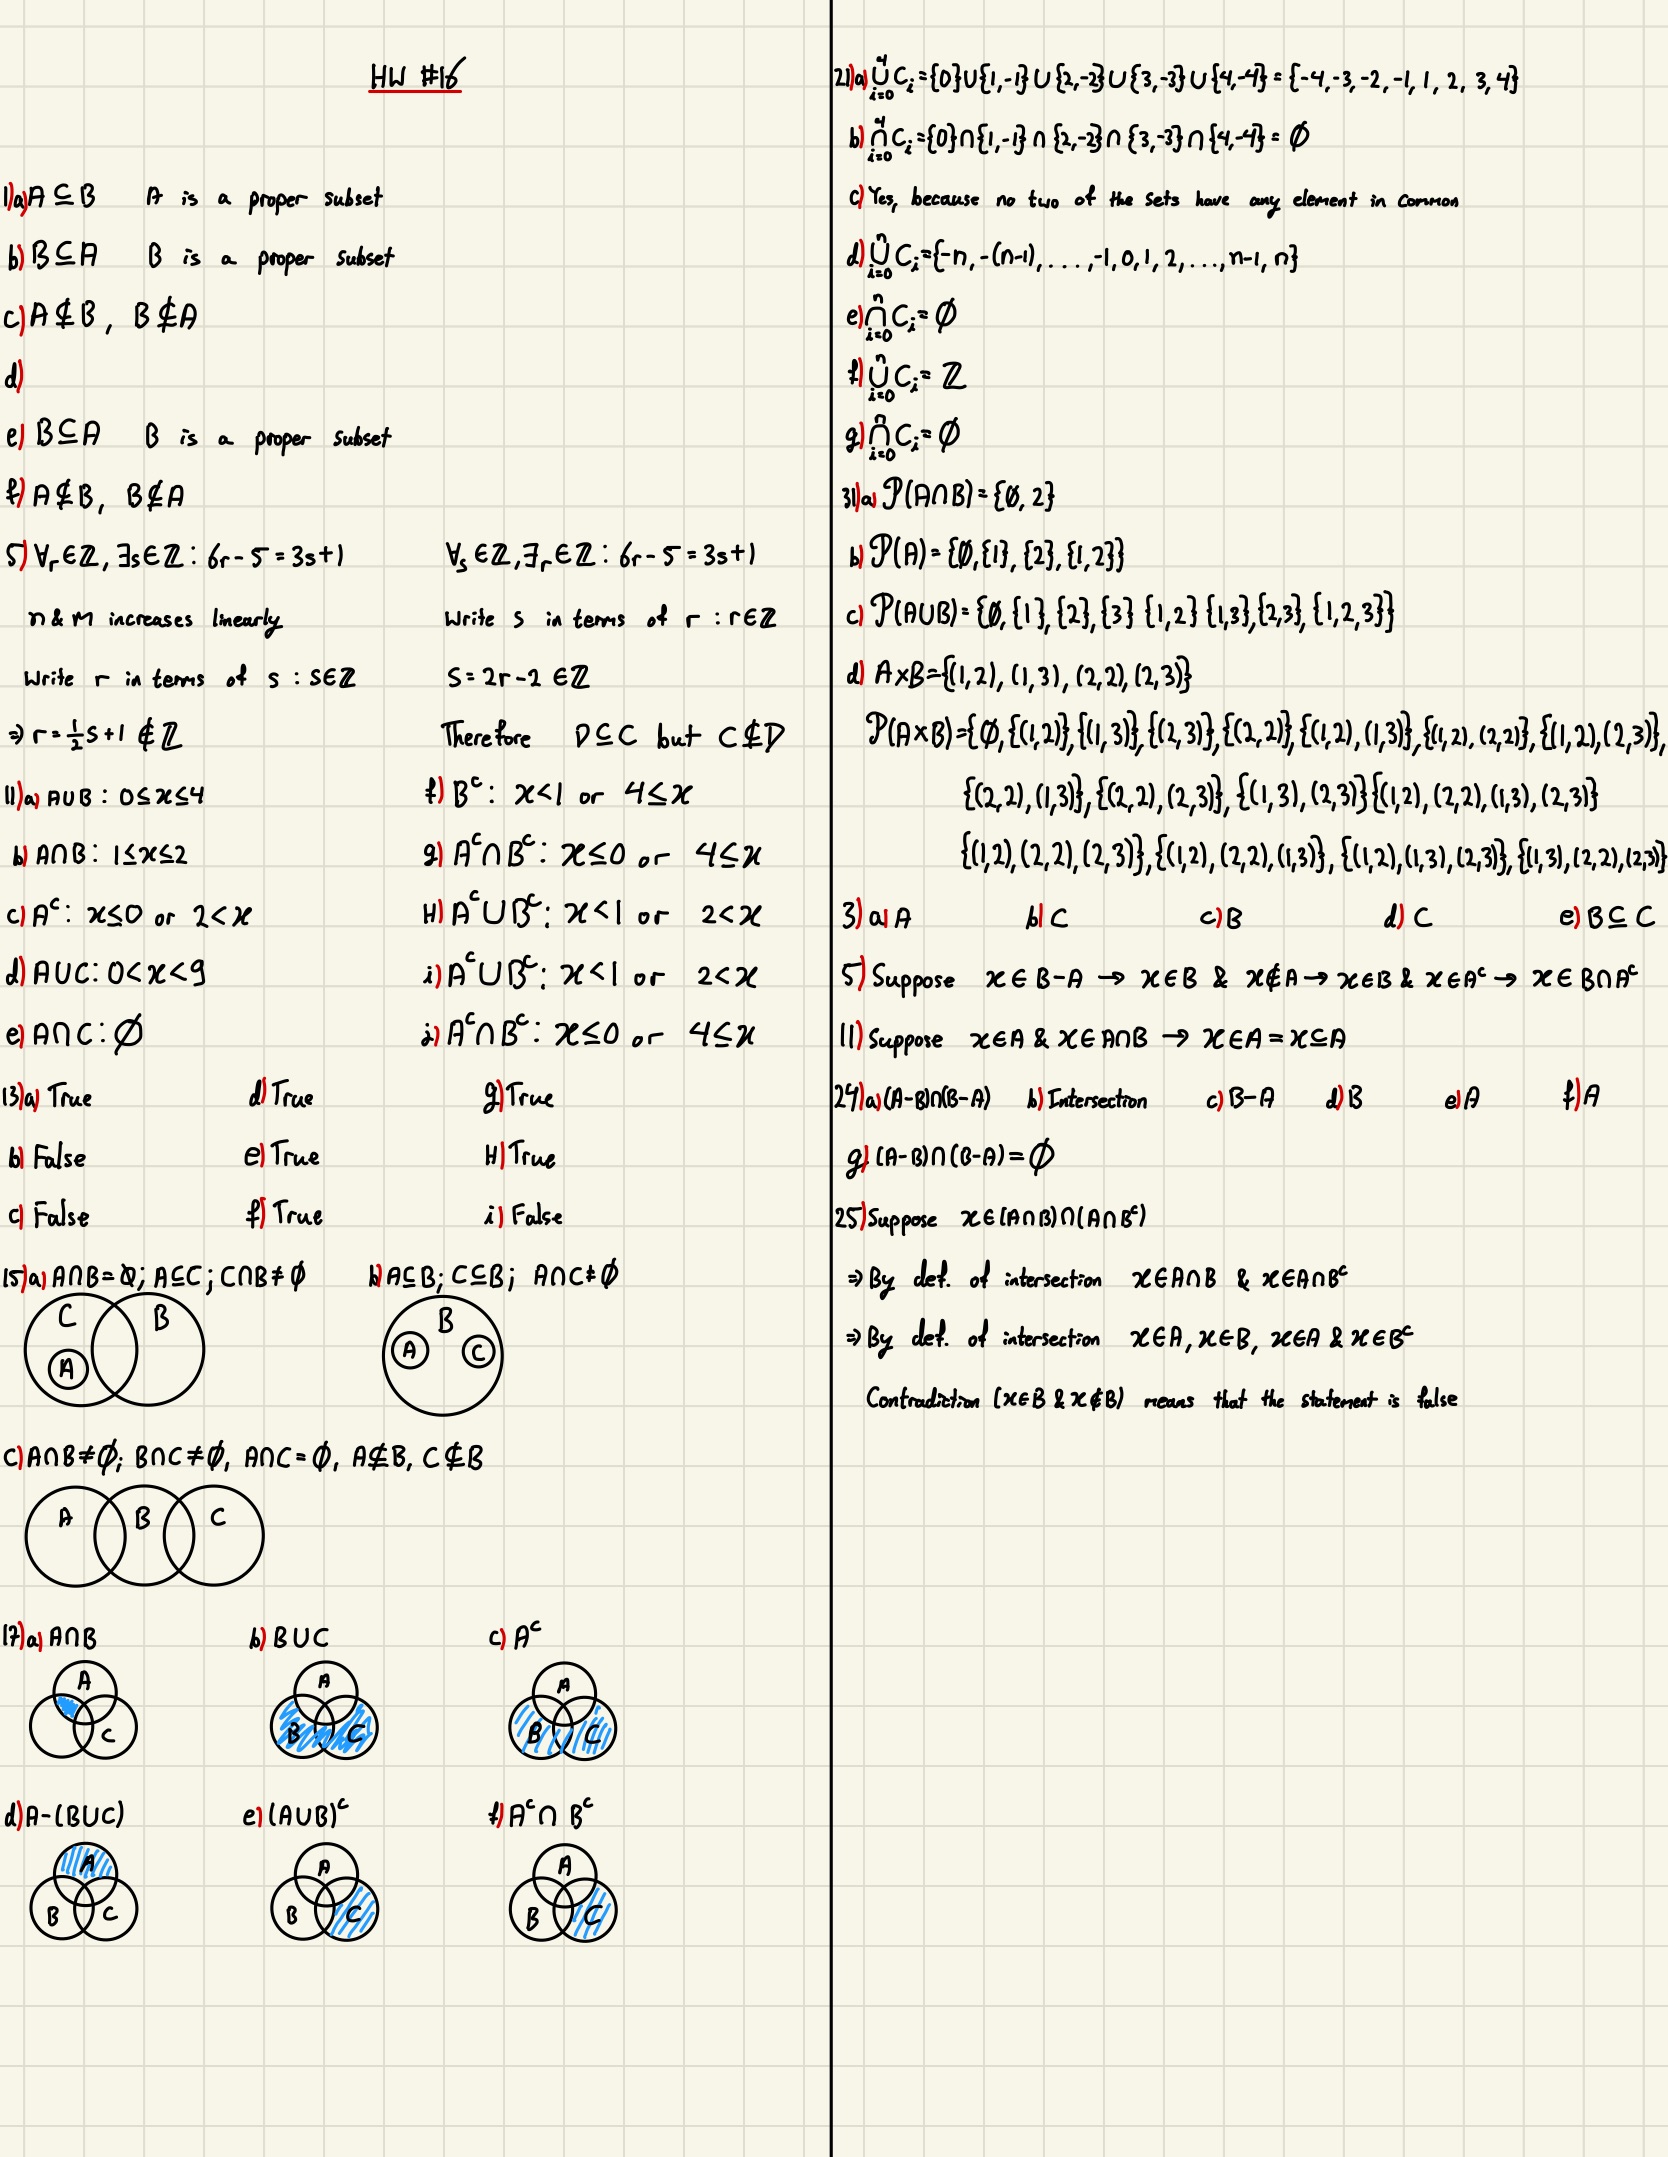 HW #16
1)a) A ⊆ B A is a proper subset
b) B ⊆ A B is a proper subset
c) A ⊈ B, B ⊈ A
d)
e) B ⊆ A B is a proper subset
f) A ⊈ B, B ⊈ A
5) ∀r∈ℤ, ∃s∈ℤ: 6r-5=3s+1 ∀s∈ℤ, ∃r∈ℤ: 6r-5=3s+1
n & m increases linearly Write s in terms of r : r∈ℤ
Write r in terms of s : s∈ℤ S=2r-2 ∈ℤ
⇒ r=½s+1 ∉ ℤ Therefore D⊆C but C⊈D
11)a) A∪B: 0≤x≤4 f) Bᶜ: x<1 or 4≤x
b) A∩B: 1≤x≤2 g) Aᶜ∩Bᶜ: x≤0 or 4≤x
c) Aᶜ: x≤0 or 2<x H) Aᶜ∪Bᶜ: x<1 or 2<x
d) A∪C: 0<x<9 i) Aᶜ∪Bᶜ: x<1 or 2<x
e) A∩C: ∅ j) Aᶜ∩Bᶜ: x≤0 or 4≤x
13)a) True d) True g) True
b) False e) True H) True
c) False f) True i) False
15)a) A∩B=∅; A⊆C; C∩B≠∅ b) A⊆B; C⊆B; A∩C≠∅
C B A
B A C
c) A∩B≠∅; B∩C≠∅, A∩C=∅, A⊈B, C⊈B
A B C
17)a) A∩B b) B∪C c) Aᶜ
A A A
C B C B C
d) A-(B∪C) e) (A∪B)ᶜ f) Aᶜ∩Bᶜ
A A A
B C B C B C
21)a) ⋃ᵢ₌₀⁴ Cᵢ={0}∪{1,-1}∪{2,-2}∪{3,-3}∪{4,-4}={-4,-3,-2,-1,1,2,3,4}
b) ⋂ᵢ₌₀⁴ Cᵢ={0}∩{1,-1}∩{2,-2}∩{3,-3}∩{4,-4}=∅
c) Yes, because no two of the sets have any element in common
d) ⋃ᵢ₌₀ⁿ Cᵢ={-n,-(n-1),....,-1,0,1,2,...,n-1,n}
e) ⋂ᵢ₌₀ⁿ Cᵢ=∅
f) ⋃ᵢ₌₀ⁿ Cᵢ=ℤ
g) ⋂ᵢ₌₀ⁿ Cᵢ=∅
31)a) 𝒫(A∩B)={∅,2}
b) 𝒫(A)={∅,{1},{2},{1,2}}
c) 𝒫(A∪B)={∅,{1},{2},{3} {1,2} {1,3},{2,3},{1,2,3}}
d) A×B={(1,2),(1,3),(2,2),(2,3)}
𝒫(A×B)={∅,{(1,2)},{(1,3)},{(2,3)},{(2,2)},{(1,2),(1,3)},{(1,2),(2,2)},{(1,2),(2,3)},
{(2,2),(1,3)},{(2,2),(2,3)},{(1,3),(2,3)}{(1,2),(2,2),(1,3),(2,3)}
{(1,2),(2,2),(2,3)},{(1,2),(2,2),(1,3)},{(1,2),(1,3),(2,3)},{(1,3),(2,2),(2,3)}
3) a) A b) C c) B d) C e) B⊆C
5) Suppose x∈B-A → x∈B & x∉A → x∈B & x∈Aᶜ → x∈B∩Aᶜ
11) Suppose x∈A & x∈A∩B → x∈A = x⊆A
24)a) (A-B)∩(B-A) b) Intersection c) B-A d) B e) A f) A
g) (A-B)∩(B-A)=∅
25) Suppose x∈(A∩B)∩(A∩Bᶜ)
⇒ By def. of intersection x∈A∩B & x∈A∩Bᶜ
⇒ By def. of intersection x∈A, x∈B, x∈A & x∈Bᶜ
Contradiction (x∈B & x∉B) means that the statement is false